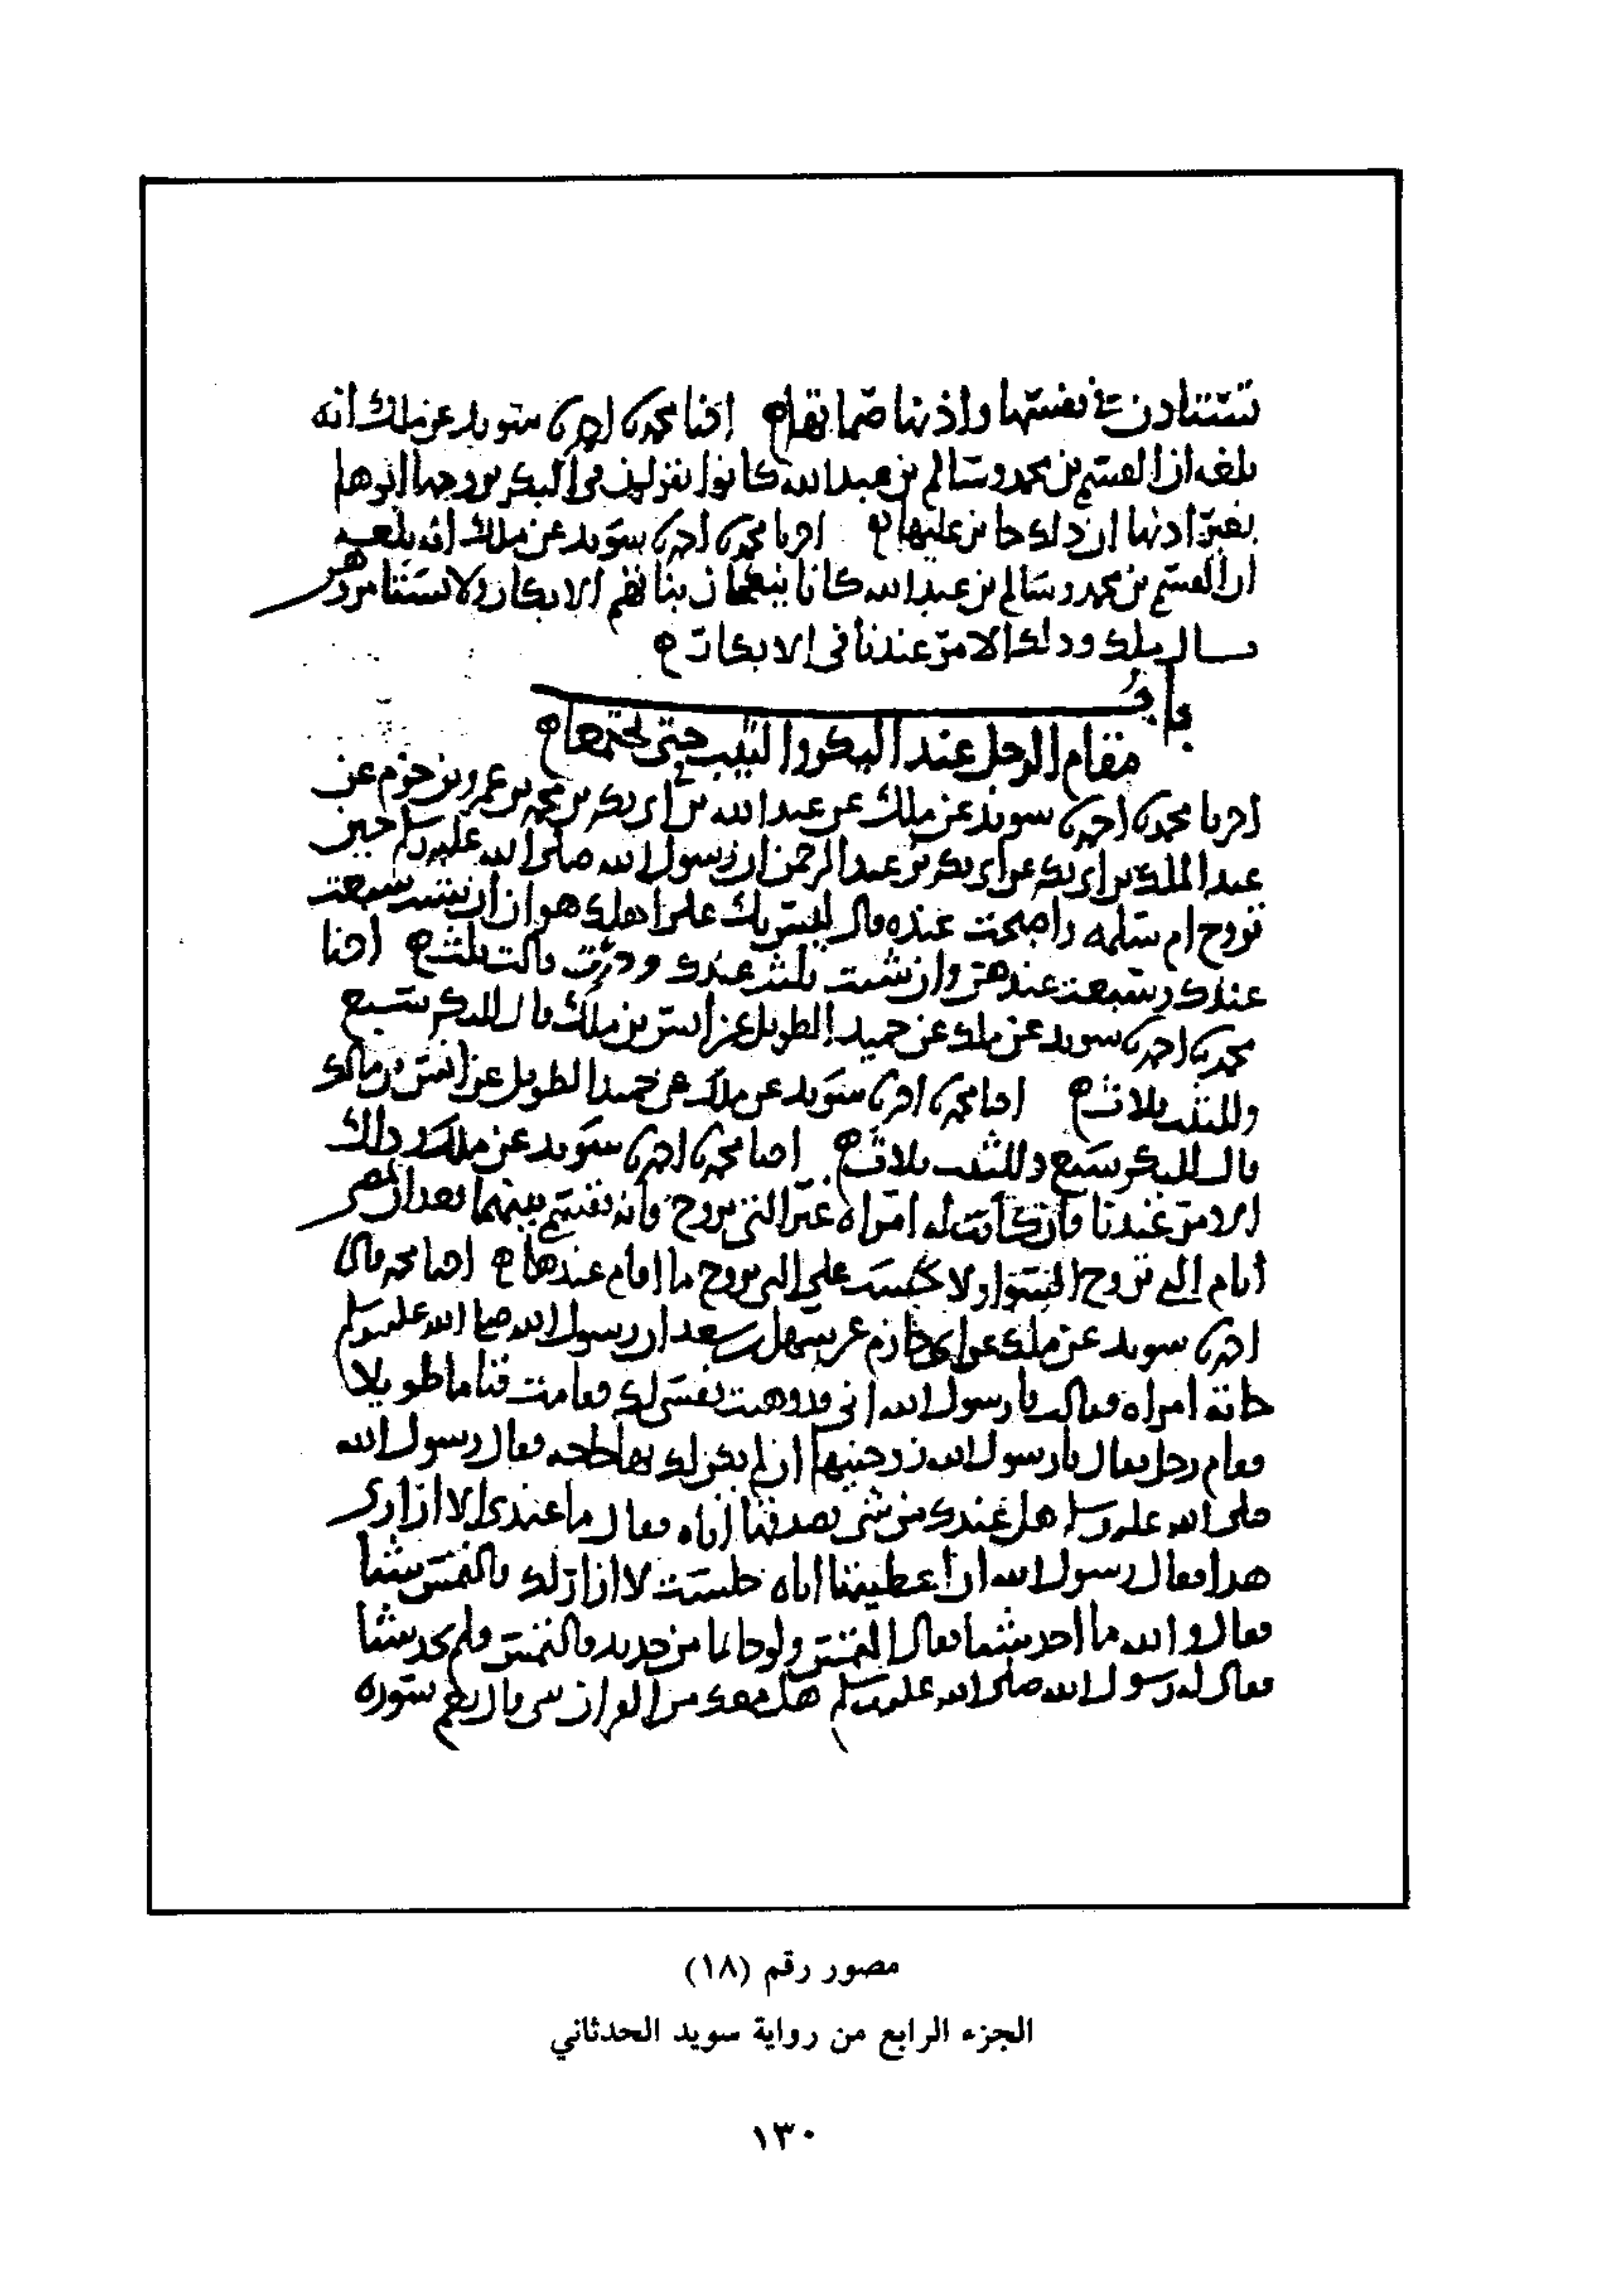 تستاذن في نفسها واذنها صماتها ه اخبرنا محمد نا احمد نا سويد عن ملك انه
بلغه ان القسم بن محمد وسالم بن عبد الله كانوا يقولون في البكر يزوجها ابوها
بغير اذنها ان ذلك جائز عليها ه اخبرنا محمد نا احمد نا سويد عن ملك انه بلغه
ان القسم بن محمد وسالم بن عبد الله كانا ينكحان بناتهم الابكار ولا يستامروهن
قال ملك وذلك الامر عندنا في الابكار ه
باب
مقام الرجل عند البكر والثيب حتى
اخبرنا محمد نا احمد نا سويد عن ملك عن عبد الله بن ابي بكر بن محمد بن عمرو بن حزم عن
عبد الملك بن ابي بكر عن ابي بكر بن عبد الرحمن ان رسول الله صلى الله عليه وسلم حين
تزوج ام سلمه واصبحت عنده قال ليس بك على اهلك هوان ان شئت سبعت
عندك وسبعت عندهن وان شئت ثلثت عندك ودرت قالت ثلث ه اخبرنا
محمد نا احمد نا سويد عن ملك عن حميد الطويل عن انس بن ملك قال للبكر سبع
وللثيب ثلاث ه اخبرنا محمد نا احمد نا سويد عن ملك عن حميد الطويل عن انس بن مالك
قال للبكر سبع وللثيب ثلاث ه اخبرنا محمد نا احمد نا سويد عن ملك وذلك
الامر عندنا فان كانت له امراة غير التي تزوج فانه يقسم بينهما بعد ان تمضي
ايام التي تزوج بالسوا ولا يحسب على التي تزوج ما اقام عندها ه اخبرنا محمد قال نا
احمد نا سويد عن ملك عن ابي حازم عن سهل بن سعد ان رسول الله صلى الله عليه وسلم
جاته امراه فقالت يا رسول الله اني قد وهبت نفسي لك فقامت قياما طويلا
فقام رجل فقال يا رسول الله زوجنيها ان لم يكن لك بها حاجه فقال رسول الله
صلى الله عليه وسلم هل عندك من شي تصدقها اياه فقال ما عندي الا ازاري
هذا فقال رسول الله ان اعطيتها اياه جلست لا ازار لك فالتمس شيا
فقال والله ما اجد شيا فقال التمس ولو خاتما من حديد فالتمس فلم يجد شيا
فقال له رسول الله صلى الله عليه وسلم هل معك من القران شي قال نعم سورة
مصور رقم (١٨)
الجزء الرابع من رواية سويد الحدثاني
١٣٠